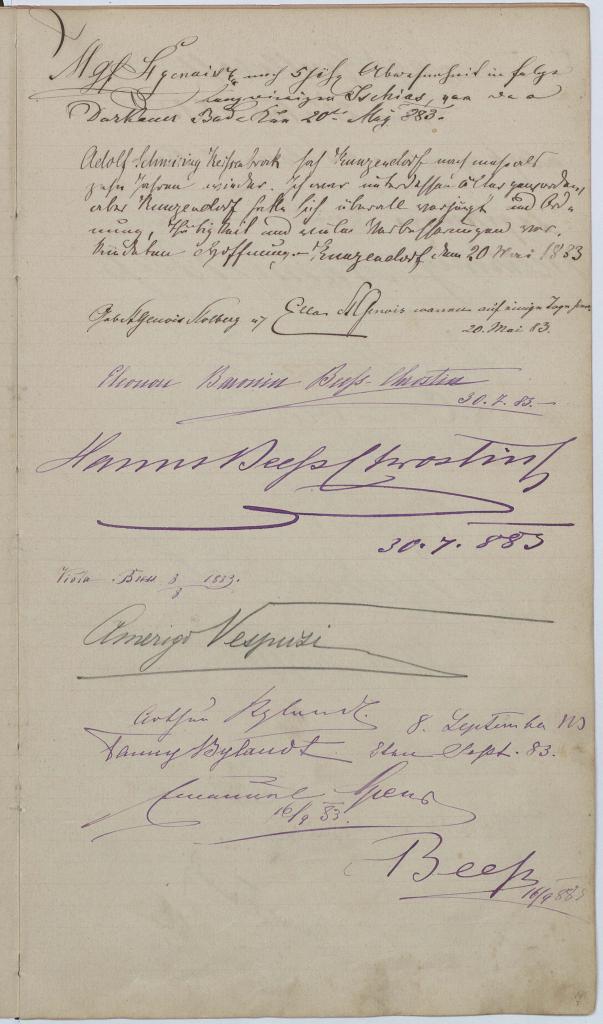 Mgf StGenois, nach 5 jähr. Abwesenheit in Folge
langwierigen Ischias, von der
Darkauer Bade Kur 20ten May 883.
Adolf hat Kunzendorf nach mehr als
zehn Jahren wieder. Ich war unterdessen alles geworden,
aber Kunzendorf hatte sich überall verjüngt und Ord-
nung, Thätigkeit und viele Verbesserungen ver-
künden Hoffnung. Kunzendorf dem 20 Mai 1883
Gabr. StGenois Stolberg u. Ella StGenois waren auf einige Tage
20. Mai 83.
Eleonore Baronin Beess-Chrostin
30. 7. 83.
Hanns Beess Chrostin
30. 7. 883
Beess 3/8 1883.
Amerigo Vespuzi
Arthur Bylandt. 8. September 883
Fanny Bylandt 8ten Sept. 83.
Emanuel Spens
16/9 83.
Beeß
16/9 883